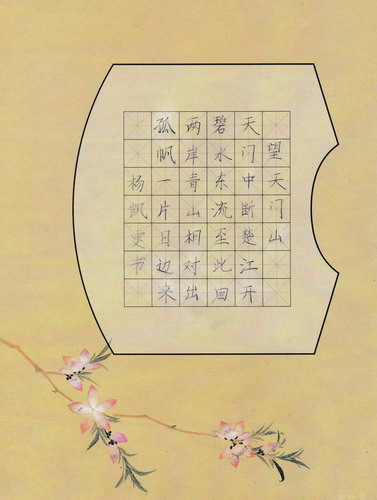 望天门山
天门中断楚江开
碧水东流至此回
两岸青山相对出
孤帆一片日边来
杨凯雯书